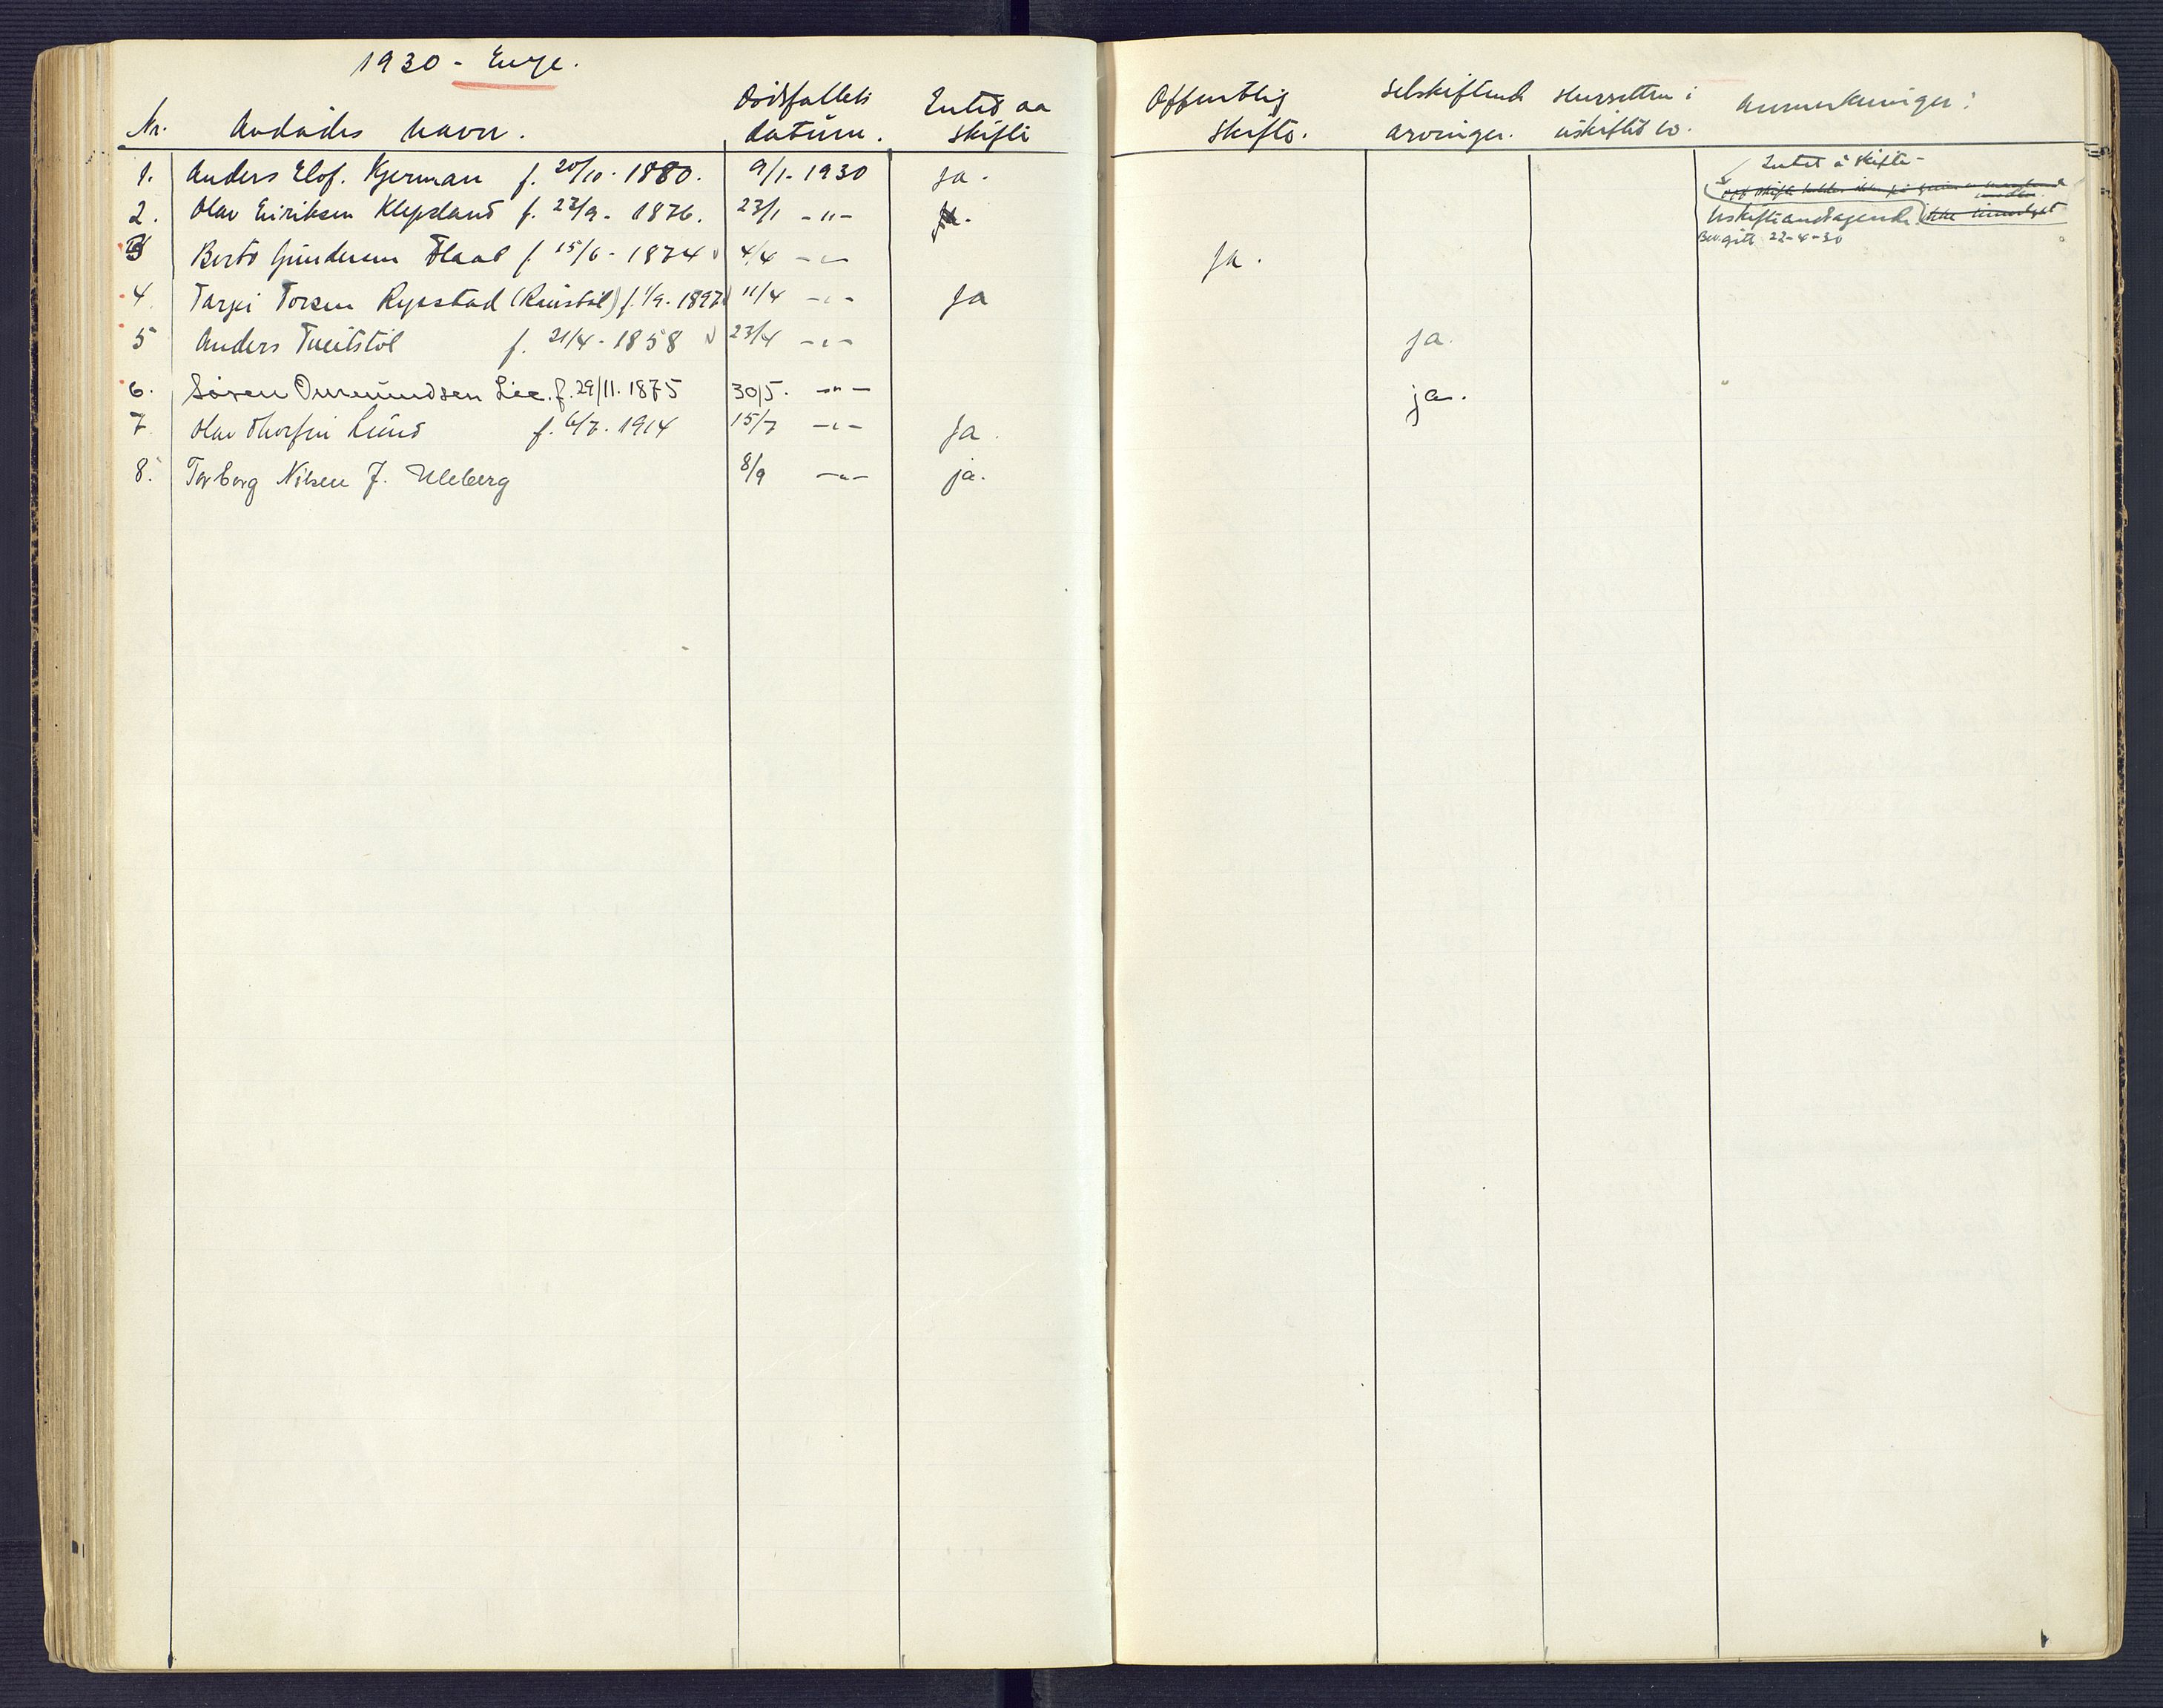 1930 - Evje.
Nr. Avdødes navn. Dødsfallets datum. Intet aa skifte Offentlig skifte. Selvskiftende arvinger. Hensitten i uskiftet bo. Anmerkninger:
1. Anders Elof. Kjerman f. 20/10 - 1880. 9/1 - 1930 Ja. Intet å skifte -
2. Olav Eiriksen Klepsland f. 22/9 - 1876. 23/1 - " - Ja. Uskifteandragende
Bev. gitt 22-4-30
3 Berto Gundersen Flaat f 15/6 - 1874 4/4 - " - Ja.
4. Targei Torsen Rysstad (Kvistøl) f. 1/9 - 1897 11/4 - " - Ja
5 Anders Tveitstøl f. 21/4 - 1858 23/4 - " - ja.
6. Søren Omundsen Lie. f. 29/11. 1875 30/5. - " - ja.
7 Olav Thorfin Lund f. 6/7 - 1914 15/7 - " - Ja.
8. Torborg Nilsen F. Uleberg 8/9 - " - ja.